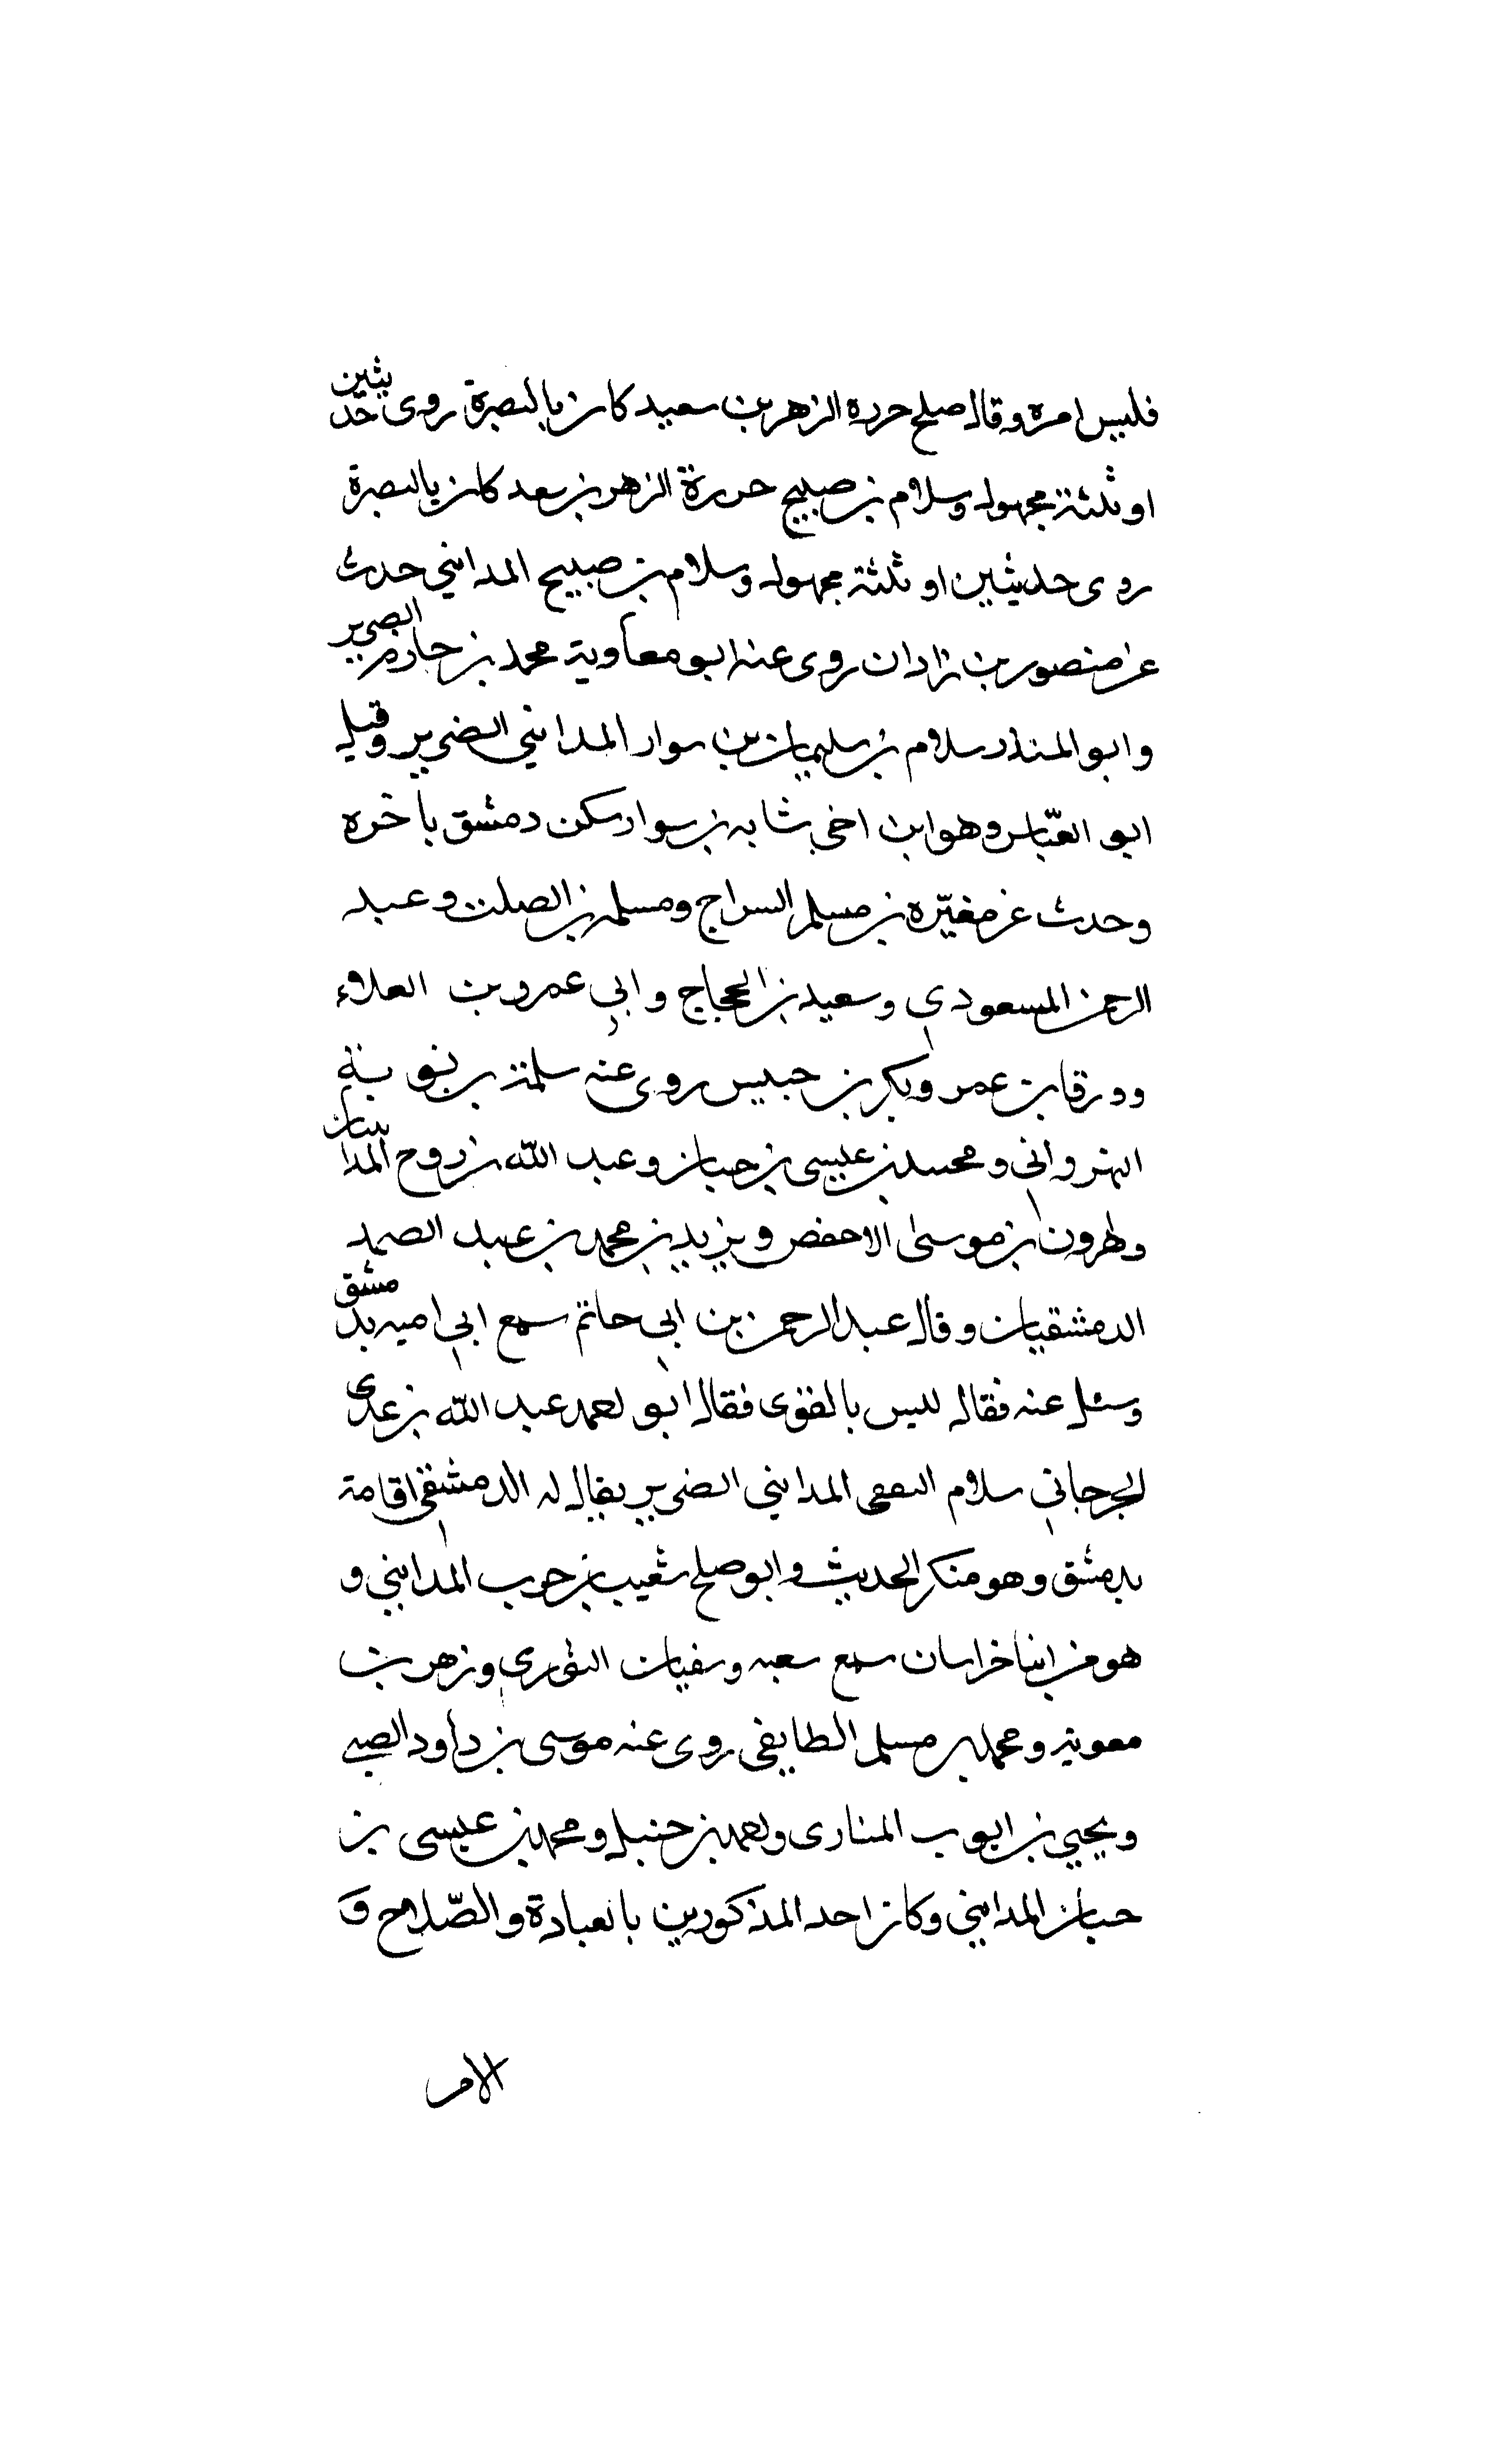 فليس امره وقال صلح حرره الزهر بن سعيد كان بالبصرة روى حديثين
او ثلثة مجهول وسلام بن صبيح حررة الزهر بن سعد كان بالبصرة
روى حديثين او ثلثة مجهول وسلام بن صبيح المدايني حدث
عن منصور بن زادان روى عنه ابو معاوية محمد بن حازم الضرير
وابو المنذر سلام بن سليمان بن سوار المدايني الضرير وقيل
ابو العبّاس وهو ابن اخى شابه بن سوار سكن دمشق باخره
وحدث عن مغيّره بن مسلم السراج ومسلمه بن الصلت وعبد
الرحمن المسعودي وسعيد بن الحجاج وابي عمرو بن العلاء
وورقا بن عمر وبكر بن حبيس روى عنه سلمة بن
النهرواني ومحمد بن عيسى بن حبان وعبد الله بن روح المدايبان
وهرون بن موسى الاحفص ويزيد بن محمد بن عبد الصمد
الدمشقيان وقال عبد الرحمن بن ابي حاتم سمع ابي اميه بدمشق
وسئل عنه فقال ليس بالقوى فقال ابو احمد عبد الله بن عدى
الجرجاني سلام المدايني الضرير يقال له الدمشقي اقامة
بدمشق وهو منكر الحديث وابو صلح شعيب بن حرب المدايني و
هو من ابنا خراسان سمع سعبه وسفيان الثوري وزهر بن
معوية ومحمد بن مسلم الطايفي روى عنه موسى بن داود الضبي
ويحيي بن ايوب المنارى واحمد بن حنبل ومحمد بن عيسى بن
حبان المدايني وكان احد المذكورين بالعبادة والصّلاح و
الامر